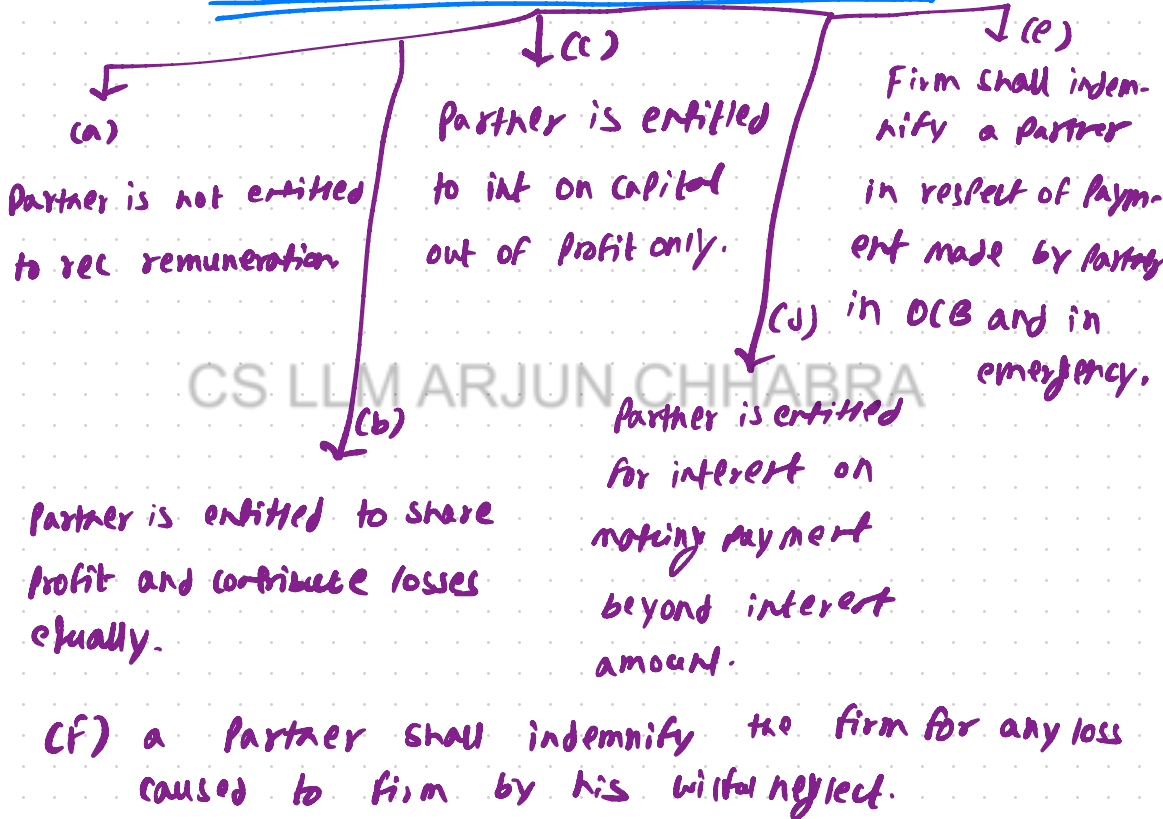 (a)
Partner is not entitled
to rec remuneration
(b)
Partner is entitled to share
Profit and contribute losses
equally.
(c)
Partner is entitled
to int on Capital
out of Profit only.
(d)
Partner is entitled
for interest on
making payment
beyond interest
amount.
(e)
Firm shall indem-
nify a Partner
in respect of Paym-
ent made by Partner
in OCB and in
emergency.
CS LLM ARJUN CHHABRA
(f) a Partner shall indemnify the firm for any loss
caused to firm by his wilful neglect.